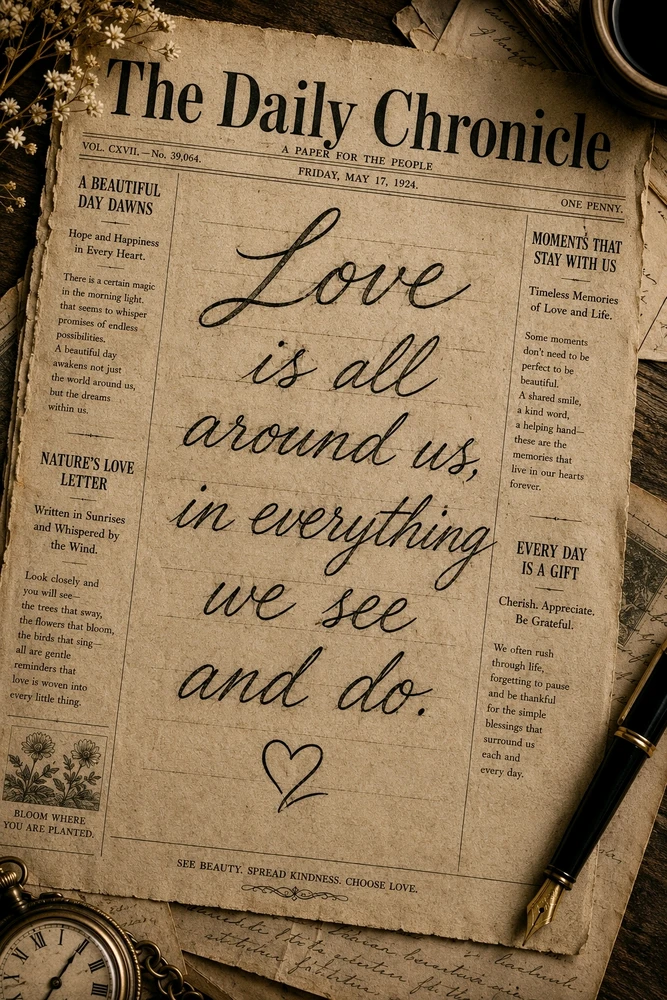 The Daily Chronicle
VOL. CXVII.—No. 39,064.
A PAPER FOR THE PEOPLE
FRIDAY, MAY 17, 1924.
ONE PENNY.
A BEAUTIFUL
DAY DAWNS
Hope and Happiness
in Every Heart.
There is a certain magic
in the morning light.
that seems to whisper
promises of endless
possibilities.
A beautiful day
awakens not just
the world around us,
but the dreams
within us.
NATURE'S LOVE
LETTER
Written in Sunrises
and Whispered by
the Wind.
Look closely and
you will see—
the trees that sway,
the flowers that bloom,
the birds that sing—
all are gentle
reminders that
love is woven into
every little thing.
BLOOM WHERE
YOU ARE PLANTED.
Love
is all
around us,
in everything
we see
and do.
MOMENTS THAT
STAY WITH US
Timeless Memories
of Love and Life.
Some moments
don't need to be
perfect to be
beautiful.
A shared smile,
a kind word,
a helping hand—
these are the
memories that
live in our hearts
forever.
EVERY DAY
IS A GIFT
Cherish. Appreciate.
Be Grateful.
We often rush
through life,
forgetting to pause
and be thankful
for the simple
blessings that
surround us
each and
every day.
SEE BEAUTY. SPREAD KINDNESS. CHOOSE LOVE.